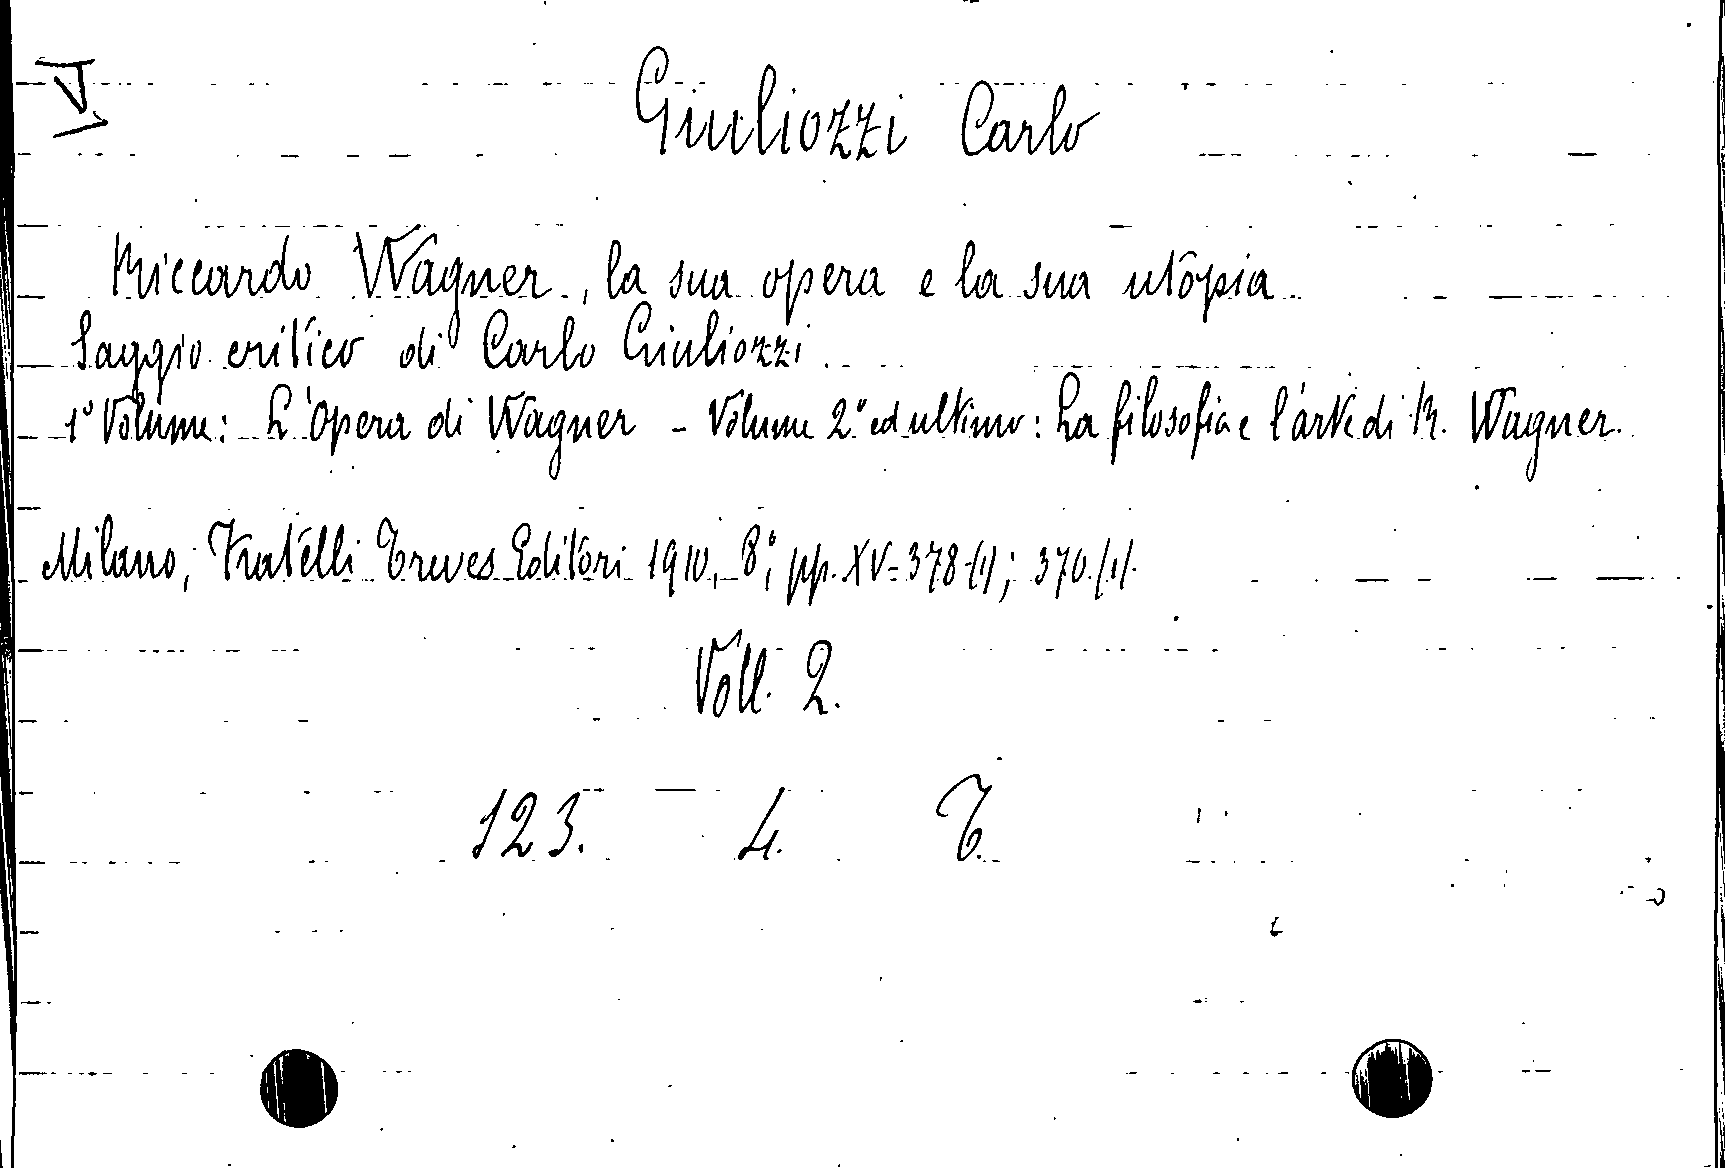 Giuliozzi Carlo
Riccardo Wagner, la sua opera e la sua utopia
Saggio critico di Carlo Giuliozzi.
1° Volume: L'Opera di Wagner - Volume 2° ed ultimo: La filosofia e l'arte di R. Wagner.
Milano, Fratelli Treves Editori 1910, 8°, pp. XV-378-(1); 370.(1).
Voll. 2.
123. 4. T.